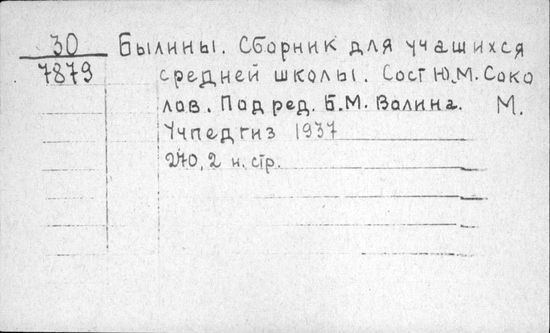 30 Былины. Сборник для учащихся
7879 средней школы. Сост Ю.М. Соко
лов. Под ред. Б.М. Волина. М.
Учпедгиз 1937
270, 2 н. стр.